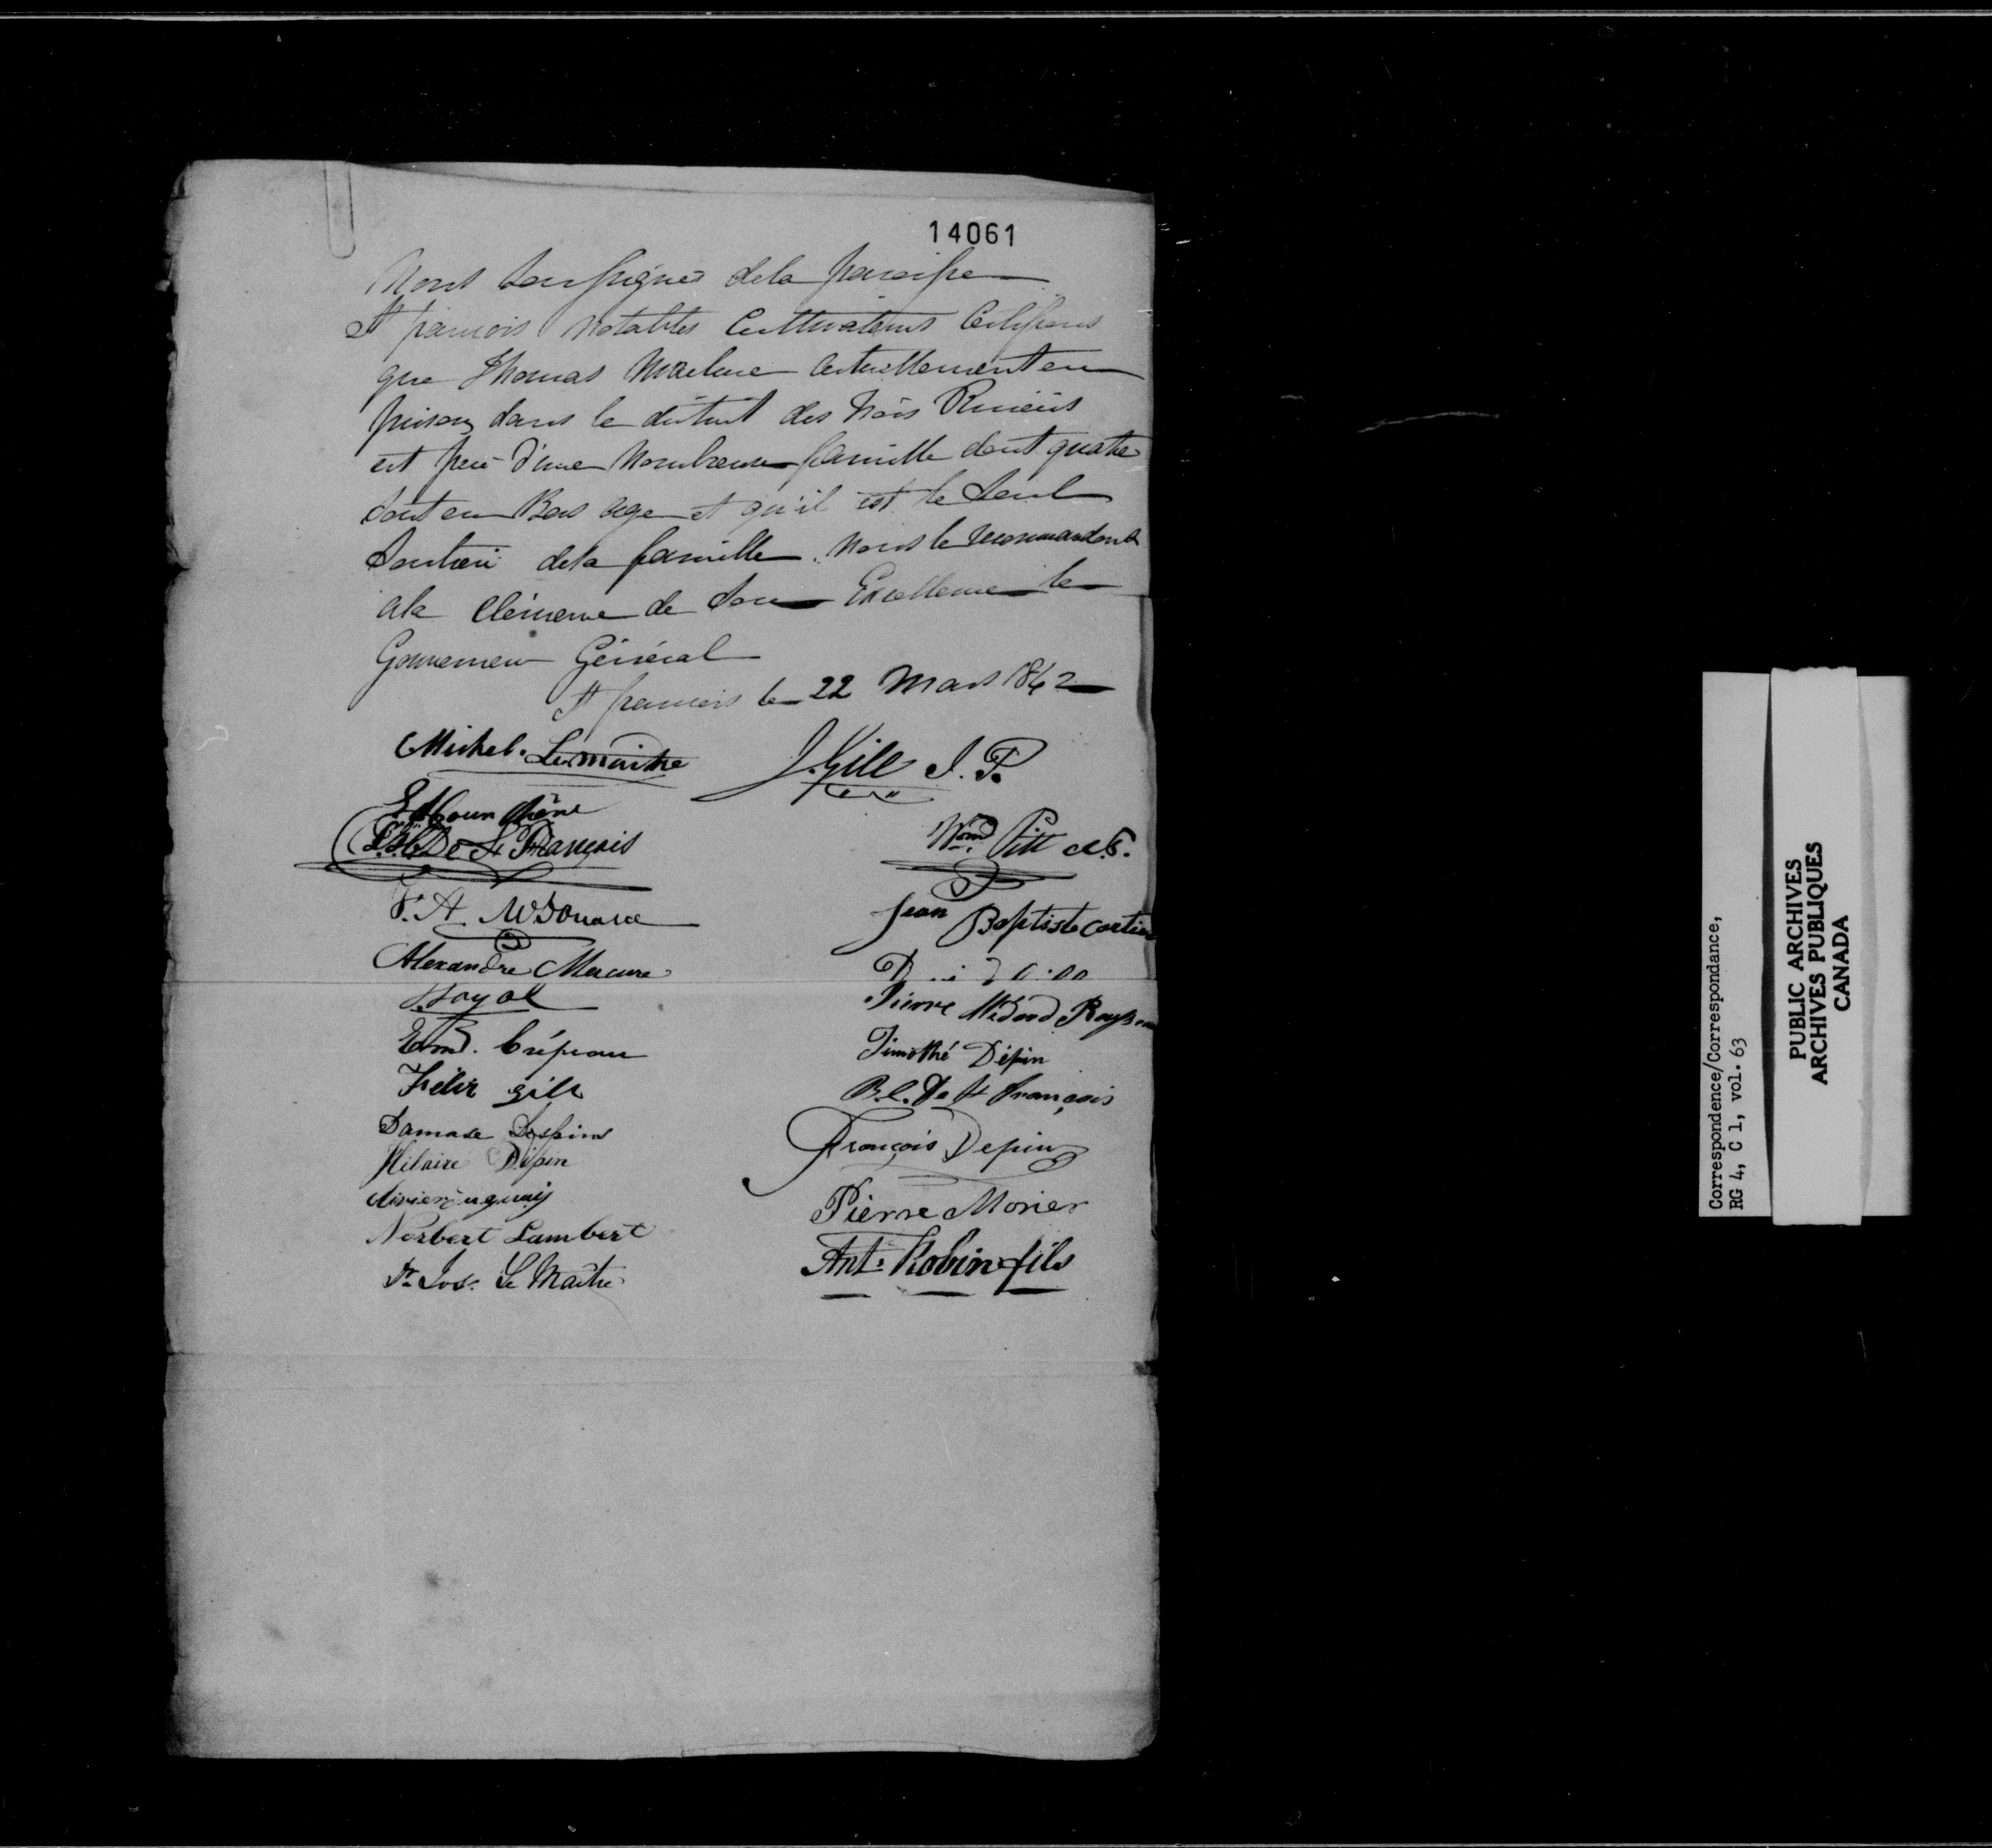 14061
Nous soussignés dela paroisse
St francois notables Cultivateurs Certifions
que Thomas actuellement en
prison dans le district des trois Rivieres
est pere d'une nombreuse famille dont quatre
sont en Bas age et qu'il est le seul
soutien dela famille. Nous le recommandons
ala Clémence de son Excellence le
Gouverneur Général
St francois le 22 Mars 1842
Michel. Lemaitre
J. Gill J. P.
De St François
Wm Pitt
Jean Baptiste Cartier
Alexandre Mercure
Boyal
Pierre Médard
Crépeau
Timothé Dépin
Félix Gill
B.C. De St François
Damase Despins
François Depin
Hilaire Dépin
Pierre Morier
Norbert Lambert
Ant. Robin fils
Jos. Le Maitre
Correspondence/Correspondance,
RG 4, C 1, vol. 63
PUBLIC ARCHIVES
ARCHIVES PUBLIQUES
CANADA